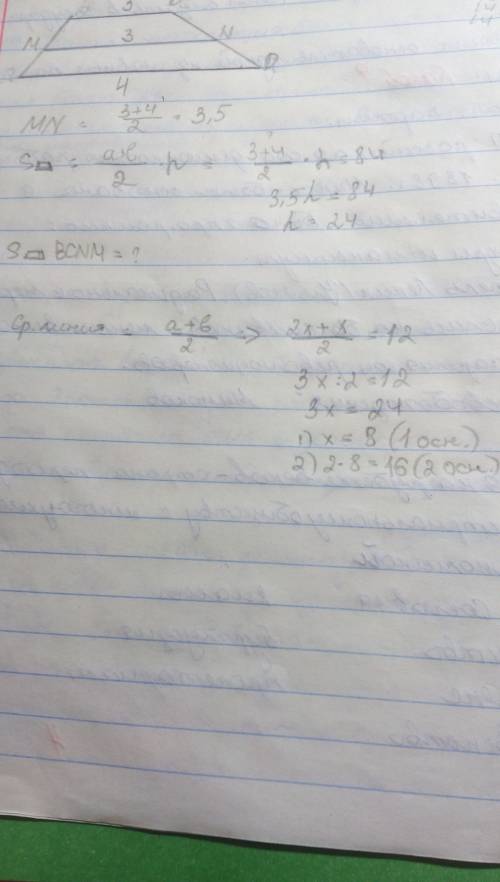 3
M 3 N
D
4
MN = (3+4)/2 = 3,5
S▱ = (a+b)/2 · h = (3+4)/2 · h = 84
3,5h = 84
h = 24
S▱ BCNM = ?
Ср. линия = (a+b)/2 => (2x+x)/2 = 12
3x : 2 = 12
3x = 24
1) x = 8 (1 осн.)
2) 2·8 = 16 (2 осн.)